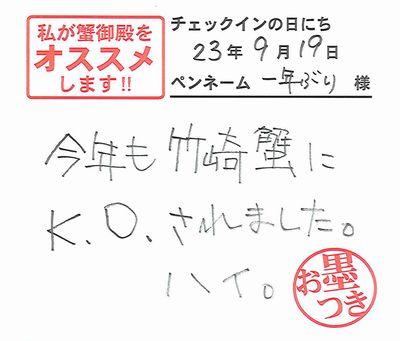 私が蟹御殿を
オススメ
します!!
チェックインの日にち
23年9月19日
ペンネーム 一年ぶり 様
今年も竹崎蟹に
K.O.されました。
ハイ。
お墨つき